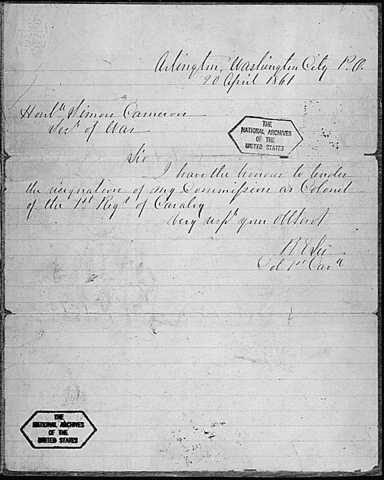 Arlington, Washington City P.O.
20 April 1861
Honble Simon Cameron
Secy of War
Sir
I have the honour to tender
the resignation of my Commission as Colonel
of the 1st Regt of Cavalry
Very respy your Obtservt
R E Lee
Col 1st Cavy
THE
NATIONAL ARCHIVES
OF THE
UNITED STATES
THE
NATIONAL ARCHIVES
OF THE
UNITED STATES